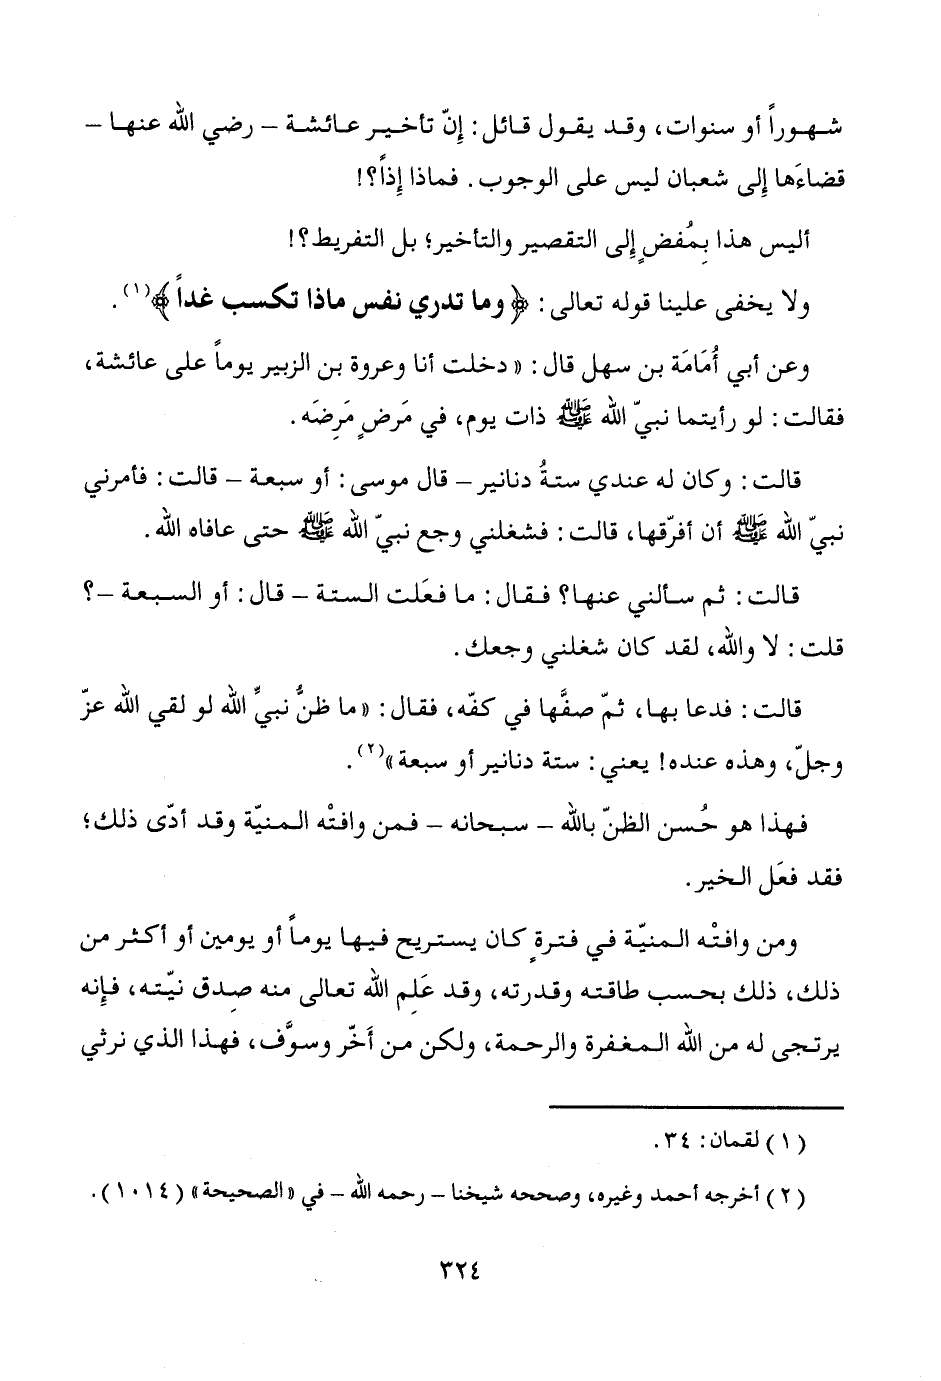 شهوراً أو سنوات، وقد يقول قائل: إنّ تأخير عائشة – رضي الله عنها –
قضاءَها إلى شعبان ليس على الوجوب. فماذا إذاً؟!
أليس هذا بِمُفضٍ إلى التقصير والتأخير؛ بل التفريط؟!
ولا يخفى علينا قوله تعالى: ﴿وما تدري نفس ماذا تكسب غداً﴾(١).
وعن أبي أُمَامَة بن سهل قال: «دخلت أنا وعروة بن الزبير يوماً على عائشة،
فقالت: لو رأيتما نبيّ الله ﷺ ذات يوم، في مَرضٍ مَرِضَه.
قالت: وكان له عندي ستةُ دنانير – قال موسى: أو سبعة – قالت: فأمرني
نبيّ الله ﷺ أن أفرّقها، قالت: فشغلني وجع نبيّ الله ﷺ حتى عافاه الله.
قالت: ثم سألني عنها؟ فقال: ما فعَلت الستة – قال: أو السبعة –؟
قلت: لا والله، لقد كان شغلني وجعك.
قالت: فدعا بها، ثمّ صفَّها في كفّه، فقال: «ما ظنُّ نبيِّ الله لو لقي الله عزّ
وجلّ، وهذه عنده! يعني: ستة دنانير أو سبعة»(٢).
فهذا هو حُسن الظنّ بالله – سبحانه – فمن وافتْه المنيّة وقد أدّى ذلك؛
فقد فعَل الخير.
ومن وافتْه المنيّة في فترةٍ كان يستريح فيها يوماً أو يومين أو أكثر من
ذلك، ذلك بحسب طاقته وقدرته، وقد عَلِم الله تعالى منه صِدق نيّته، فإنه
يرتجى له من الله المغفرة والرحمة، ولكن من أَخّر وسوَّف، فهذا الذي نرثي
(١) لقمان: ٣٤.
(٢) أخرجه أحمد وغيره، وصححه شيخنا – رحمه الله – في «الصحيحة» (١٠١٤).
٣٢٤